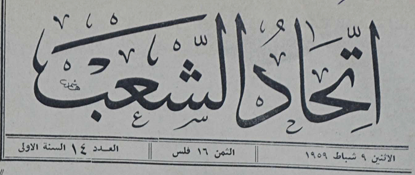 اتحاد الشعب
الاثنين ٩ شباط ١٩٥٩ الثمن ١٦ فلس العدد ١٤ السنة الاولى